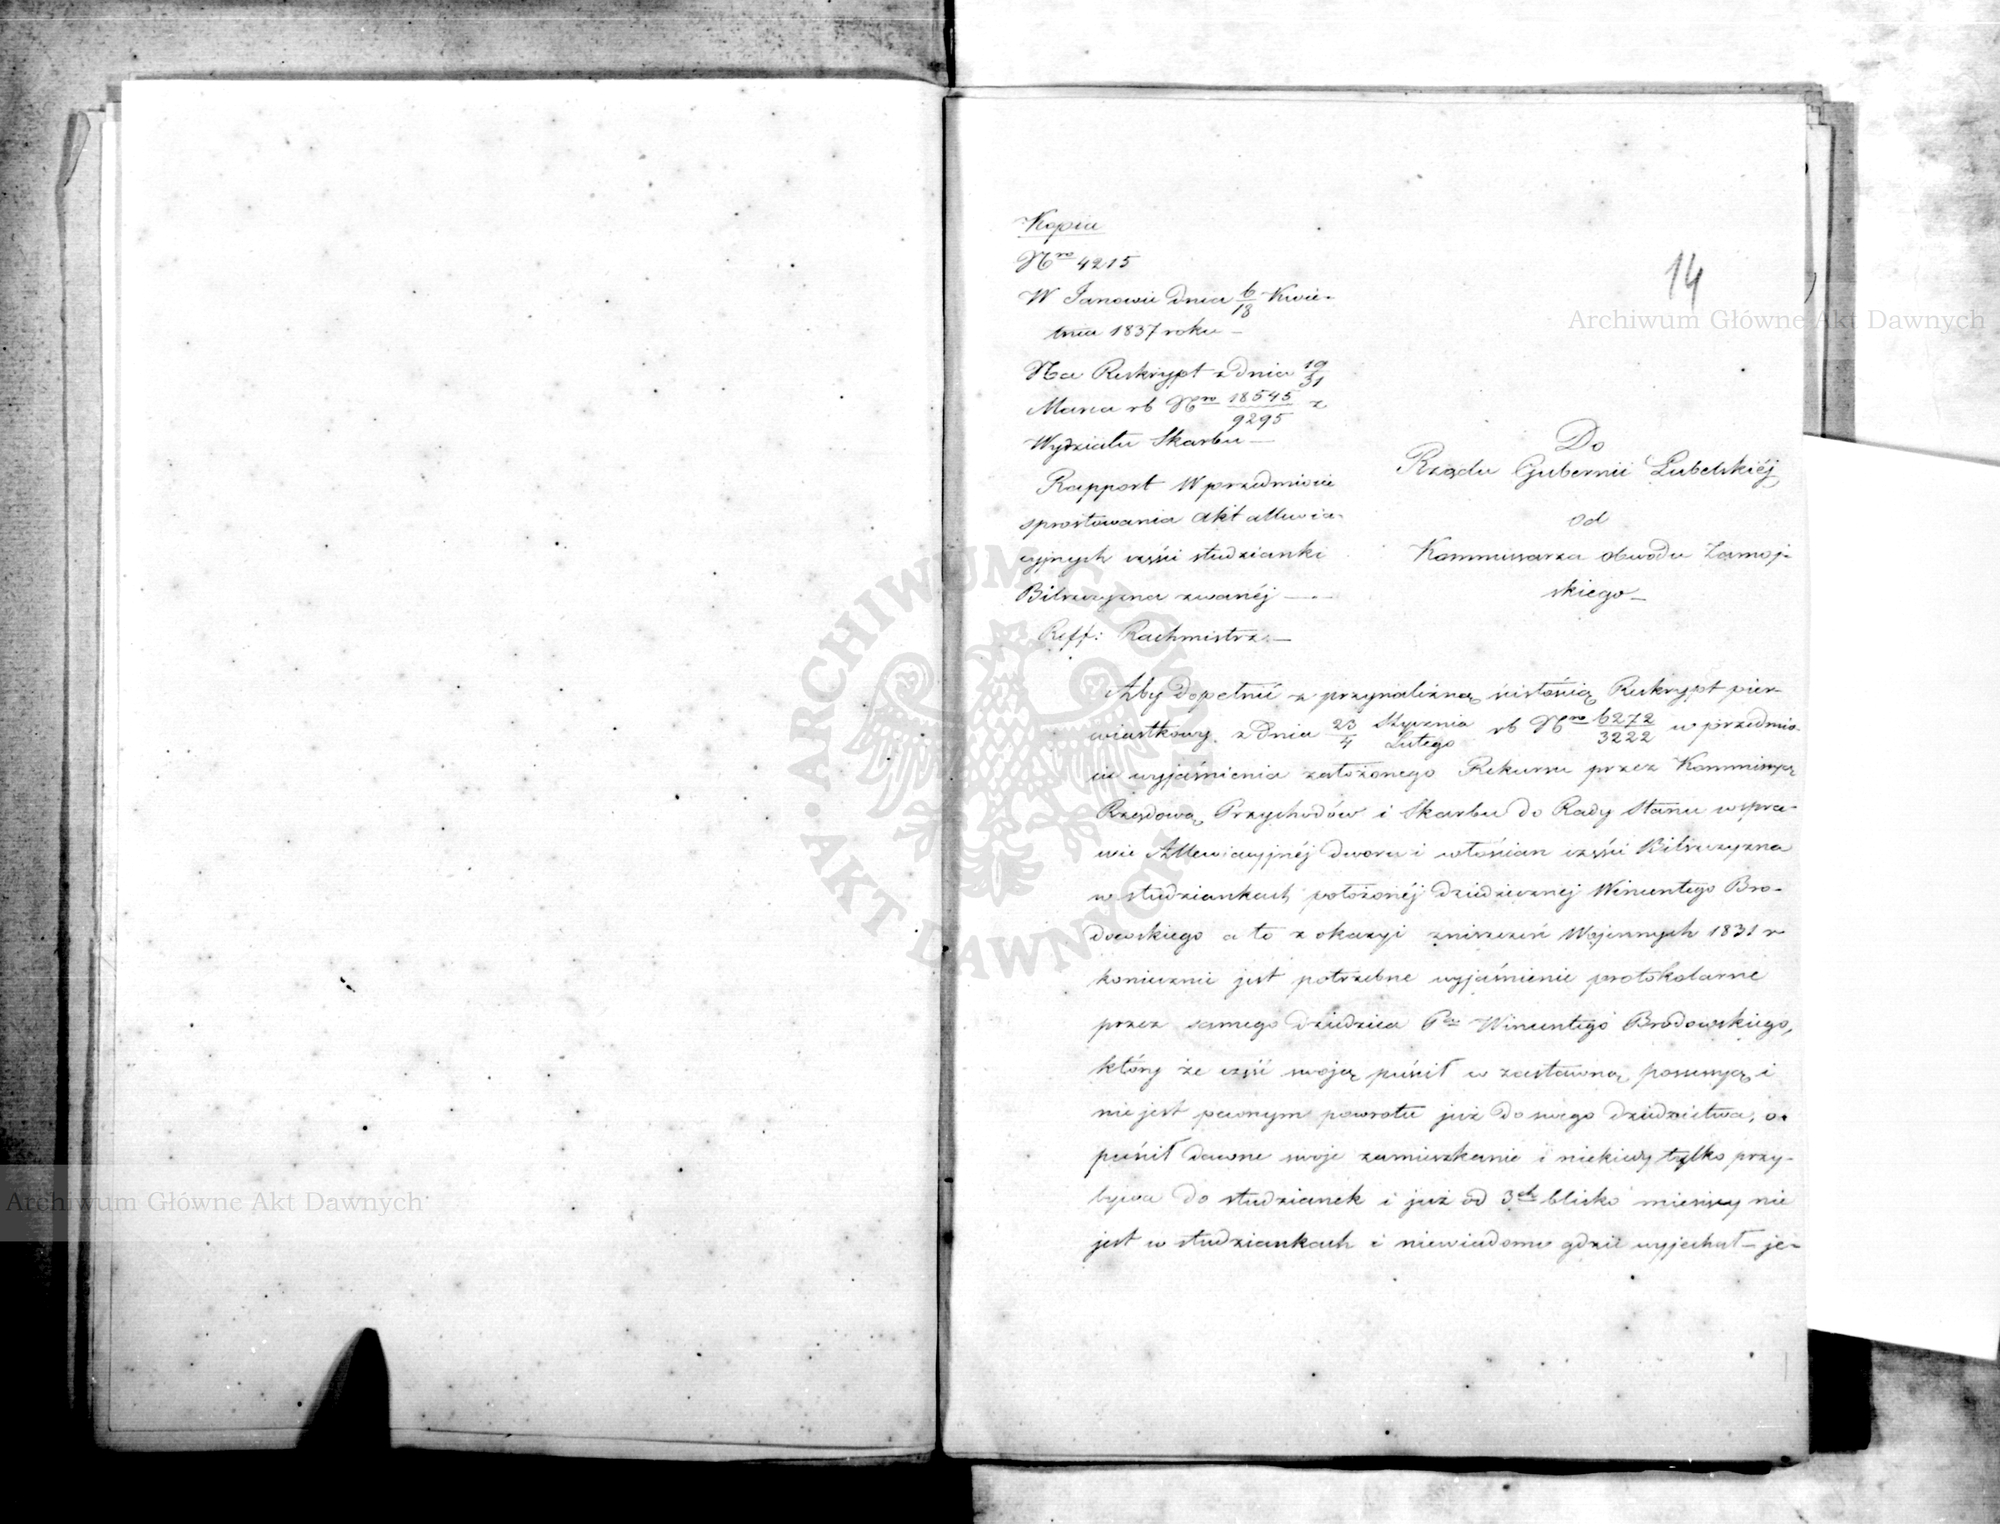 14
Kopia
Nro 4215
W Janowie dnia 6/18 Kwie-
tnia 1837 roku –
Na Reskrypt z dnia 19/31
Marca rb Nro 18545/9295 z
Wydziału Skarbu –
Rapport w przedmiocie
sprostowania akt allewia-
cyjnych części studzianki
Bilszczyzna zwanéj –
Reff: Rachmistrz. –
Do
Rządu Gubernii Lubelskiéj
od
Kommissarza obwodu Zamoj-
skiego –
Aby dopełnić z przynależną ścisłością Reskrypt pier-
wiastkowy z dnia 23 Stycznia/4 Lutego rb Nro 6272/3222 w przedmio-
cie wyjaśnienia założonego Rekursu przez Kommissyą
Rządową Przychodów i Skarbu do Rady Stanu w spra-
wie Allewiacyjnéj dworu i włościan części Bilszczyzna
w studziankach położonéj dziedzicznej Wincentego Bro-
dowskiego a to z okazyi zniszczeń Wojennych 1831 r
koniecznie jest potrzebne wyjaśnienie protokolarne
przez samego dziedzica Pa Wincentego Brodowskiego,
który że część swoją puścił w zastawną possessyą i
nie jest pewnym powrotu już do swego dziedzictwa, o-
puścił dawne swoje zamieszkanie i niekiedy tylko przy-
bywa do studzianek i już od 3ch blisko miesięcy nie
jest w studziankach i niewiadomo gdzie wyjechał – je-
Archiwum Główne Akt Dawnych
Archiwum Główne Akt Dawnych
ARCHIWUM GŁÓWNE AKT DAWNYCH